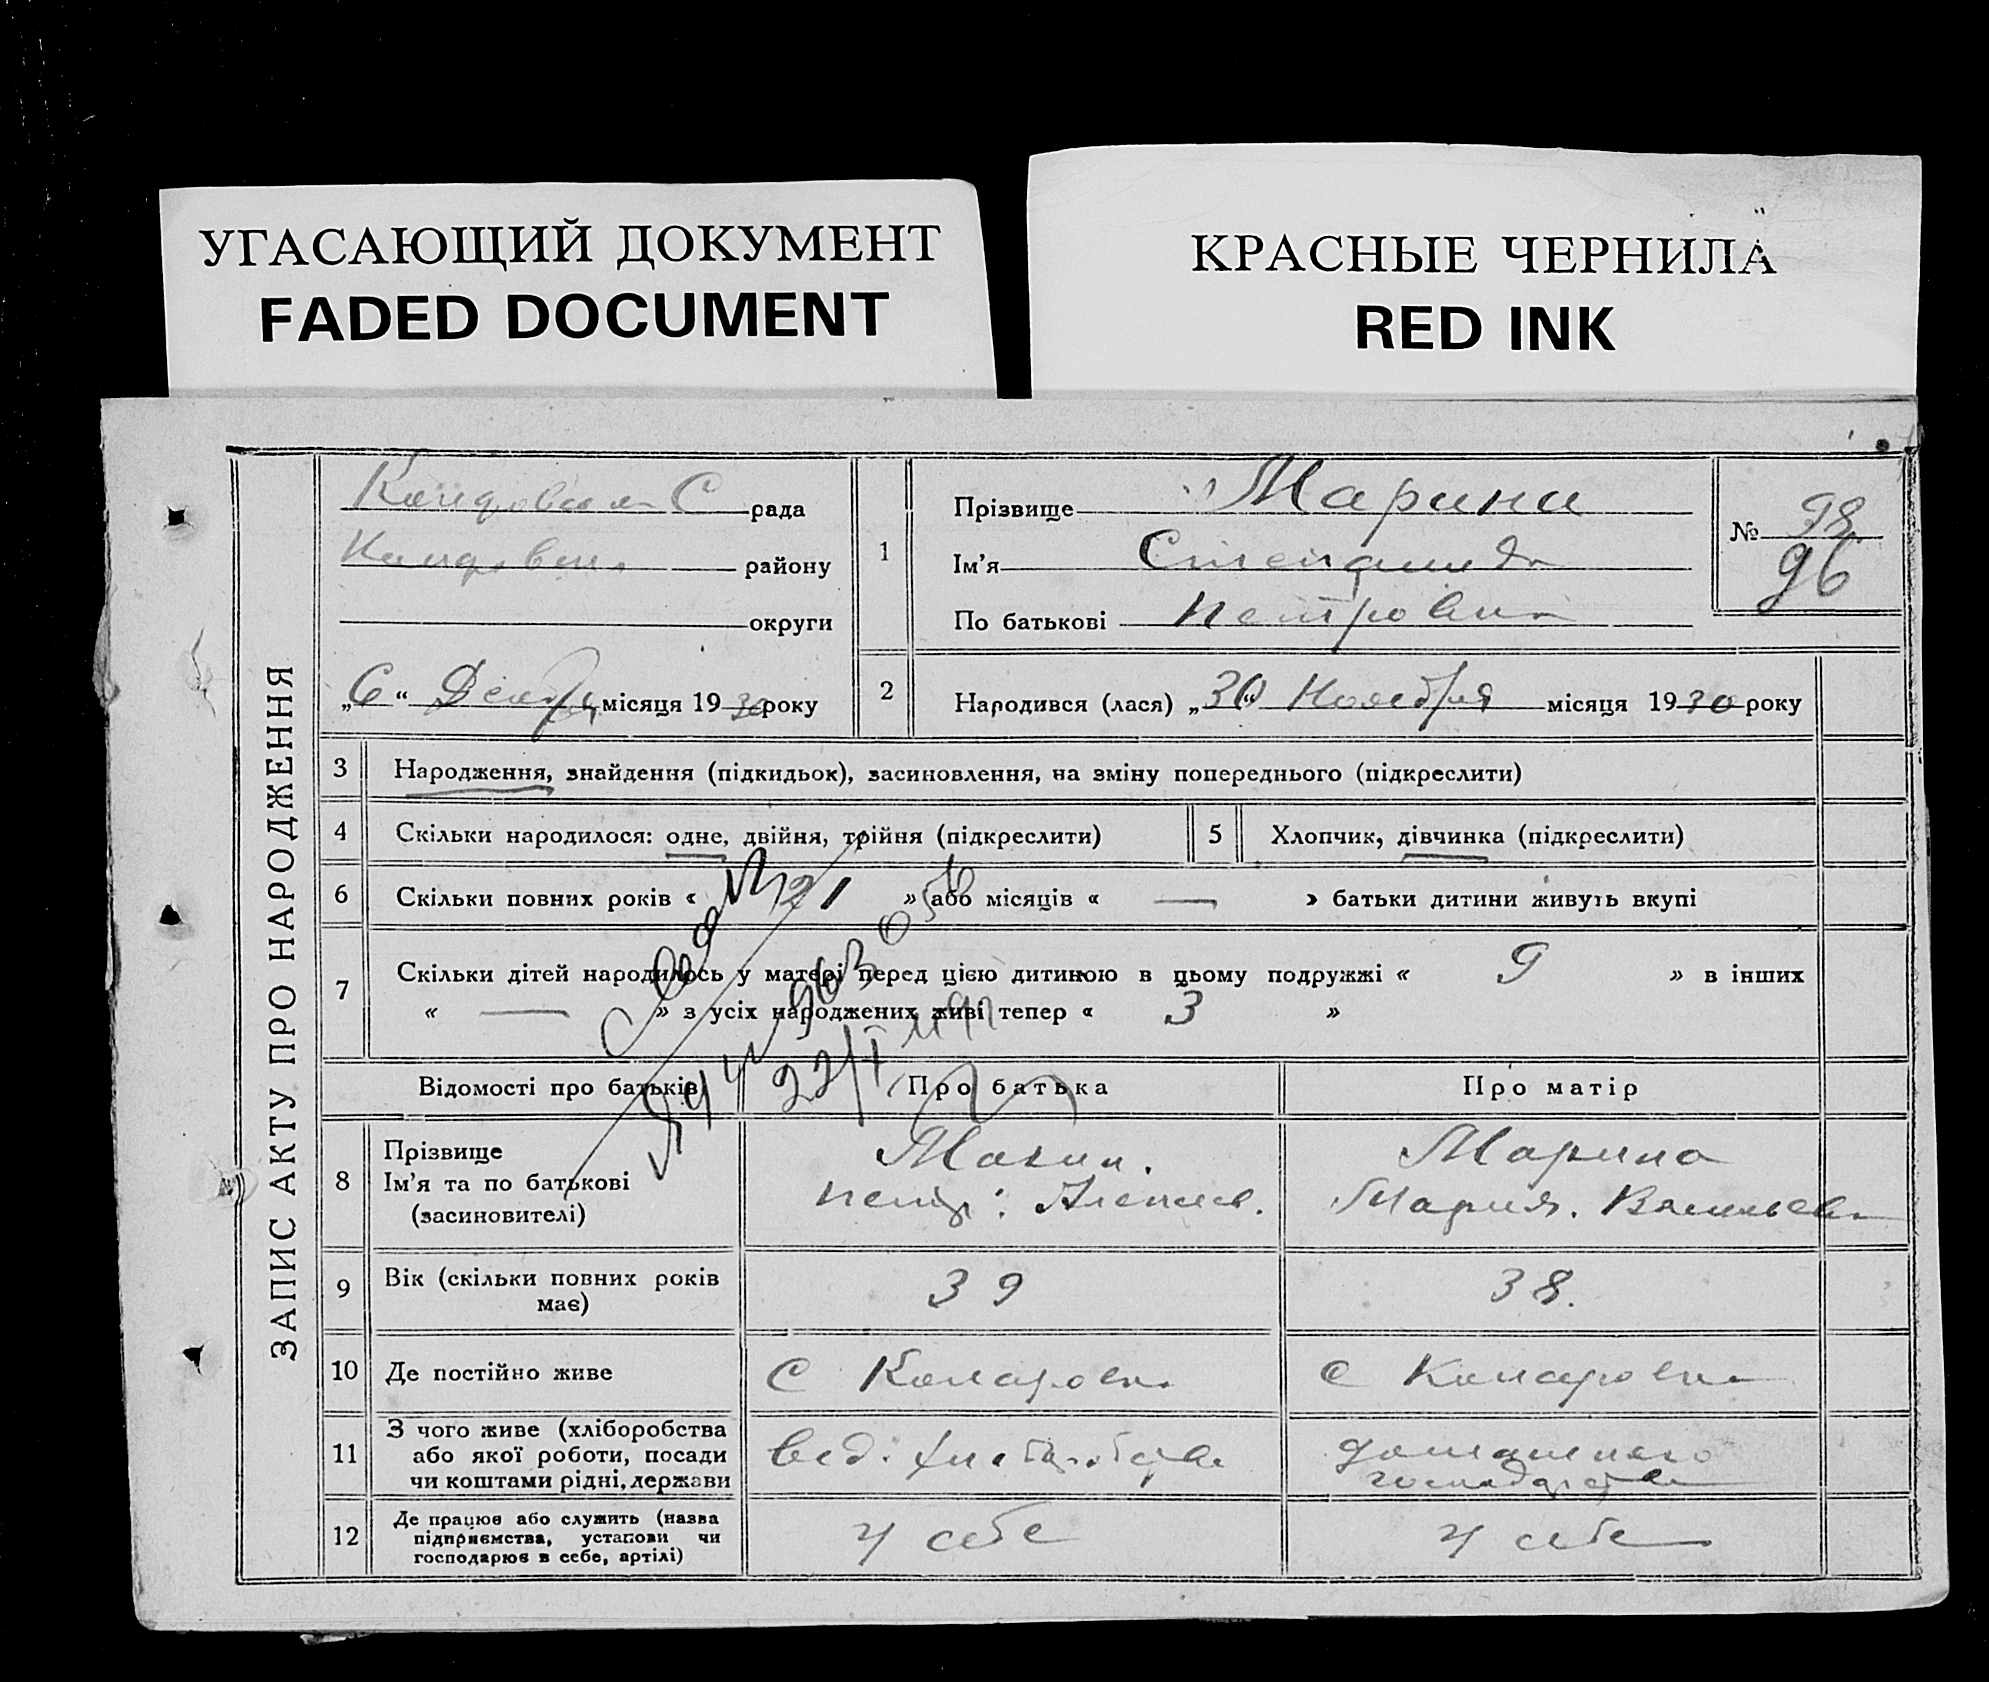 УГАСАЮЩИЙ ДОКУМЕНТ
FADED DOCUMENT
КРАСНЫЕ ЧЕРНИЛА
RED INK
ЗАПИС АКТУ ПРО НАРОДЖЕННЯ
С рада
району
округи
„6“ місяця 1930 року
1
Прізвище Марина
Ім'я Степанида
По батькові Петровна
№ 98
96
2 Народився (лася) „30“ Ноября місяця 1930 року
3 Народження, знайдення (підкидьок), засиновлення, на зміну попереднього (підкреслити)
4 Скільки народилося: одне, двійня, трійня (підкреслити) 5 Хлопчик, дівчинка (підкреслити)
6 Скільки повних років « 21 » або місяців « — » батьки дитини живуть вкупі
7 Скільки дітей народилось у матері перед цією дитиною в цьому подружжі « 9 » в інших
« — » з усіх народжених живі тепер « 3 »
22/I
Відомості про батьків Про батька Про матір
8 Прізвище Марина
Ім'я та по батькові Петр. Мария.
(засиновителі)
9 Вік (скільки повних років 39 38.
має)
10 Де постійно живе с с
11 З чого живе (хліборобства
або якої роботи, посади домашнего
чи коштами рідні, держави
12 Де працює або служить (назва
підприємства, установи чи у себе у себе
господарює в себе, артілі)